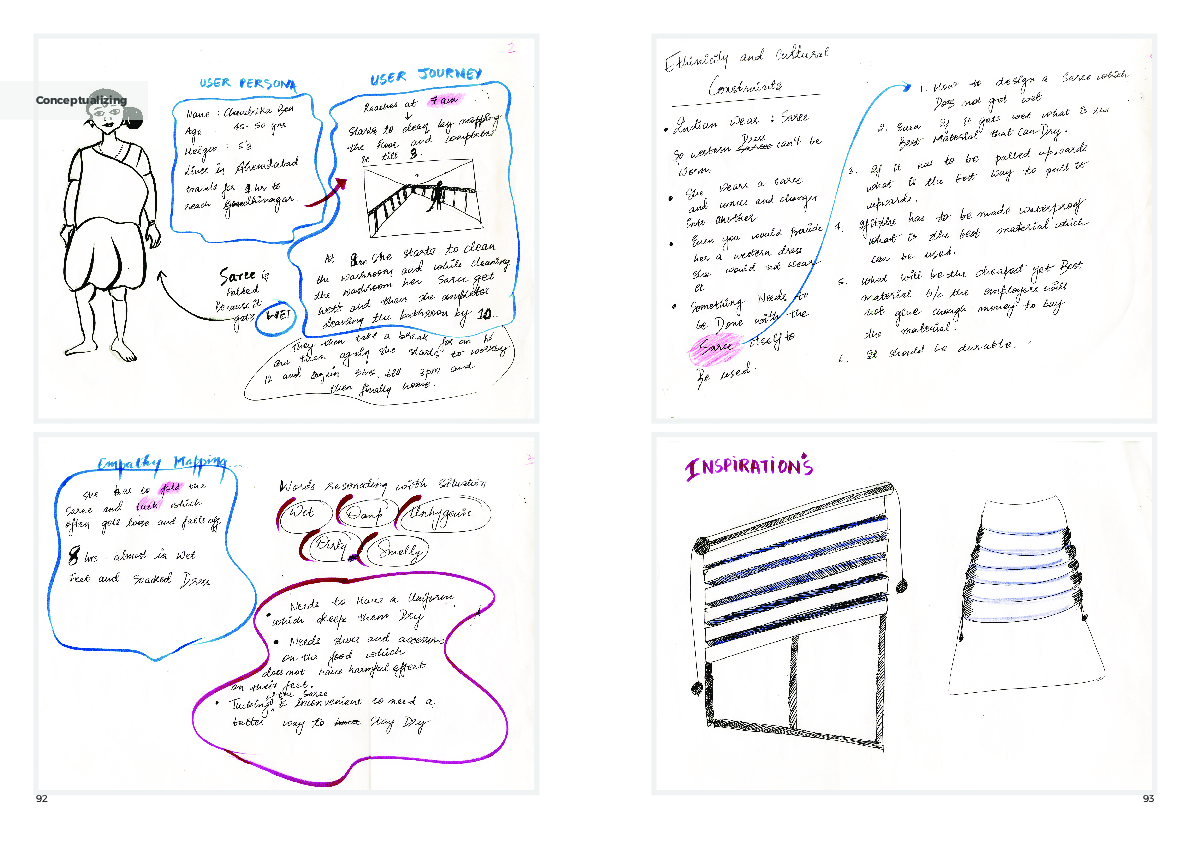 Conceptualizing
1
USER PERSONA
Name : Chandrika Ben
Age : 45-50 yrs
Height : 5'3
Lives in Ahemdabad
travels for 1 hr to
reach Gandhinagar
Saree is
folded
Because it
gets WET
USER JOURNEY
Reaches at 7 am
↓
Starts to clean by mopping
the floor and completes
it till 8.
At 8 she starts to clean
the washroom and while cleaning
the washroom her Saree get
wet and then she completes
cleaning the bathroom by 10.
They then take a break for an hr
and then again she starts to
12 and again till 3pm and
then finally home.
Ethinicity and Cultural
Constraints
• Indian Wear : Saree
So western Dress can't be
Worn
• She wears a saree
and comes and changes
into another
• Even you would provide
her a western dress
she would not wear
it
• Something Needs to
be Done with the
Saree itself to
Be used.
1. How to design a Saree which
Does not get wet
2. Even if it gets wet what is the
Best Material that can Dry.
3. If it has to be pulled upwards
what is the best way to pull it
upwards.
4. If it has to be made waterproof
what is the best material which
can be used.
5. What will be the cheapest yet Best
material b/c the employers will
not give enough money to buy
the material.
6. It should be durable.
Empathy Mapping
2
She has to fold the
saree and tuck which
often gets loose and falls off
8 hrs almost in wet
feet and soacked Dress
Words Resonating with Situation
Wet Damp Unhygenic
Dirty Smelly
• Needs to Have a Uniform
which keeps them Dry
• Needs shoes and accessories
on the food which
does not have harmful effect
on their feet.
• Tucking of the Saree is Inconvenient so need a
better way to Stay Dry
INSPIRATION'S
92
93